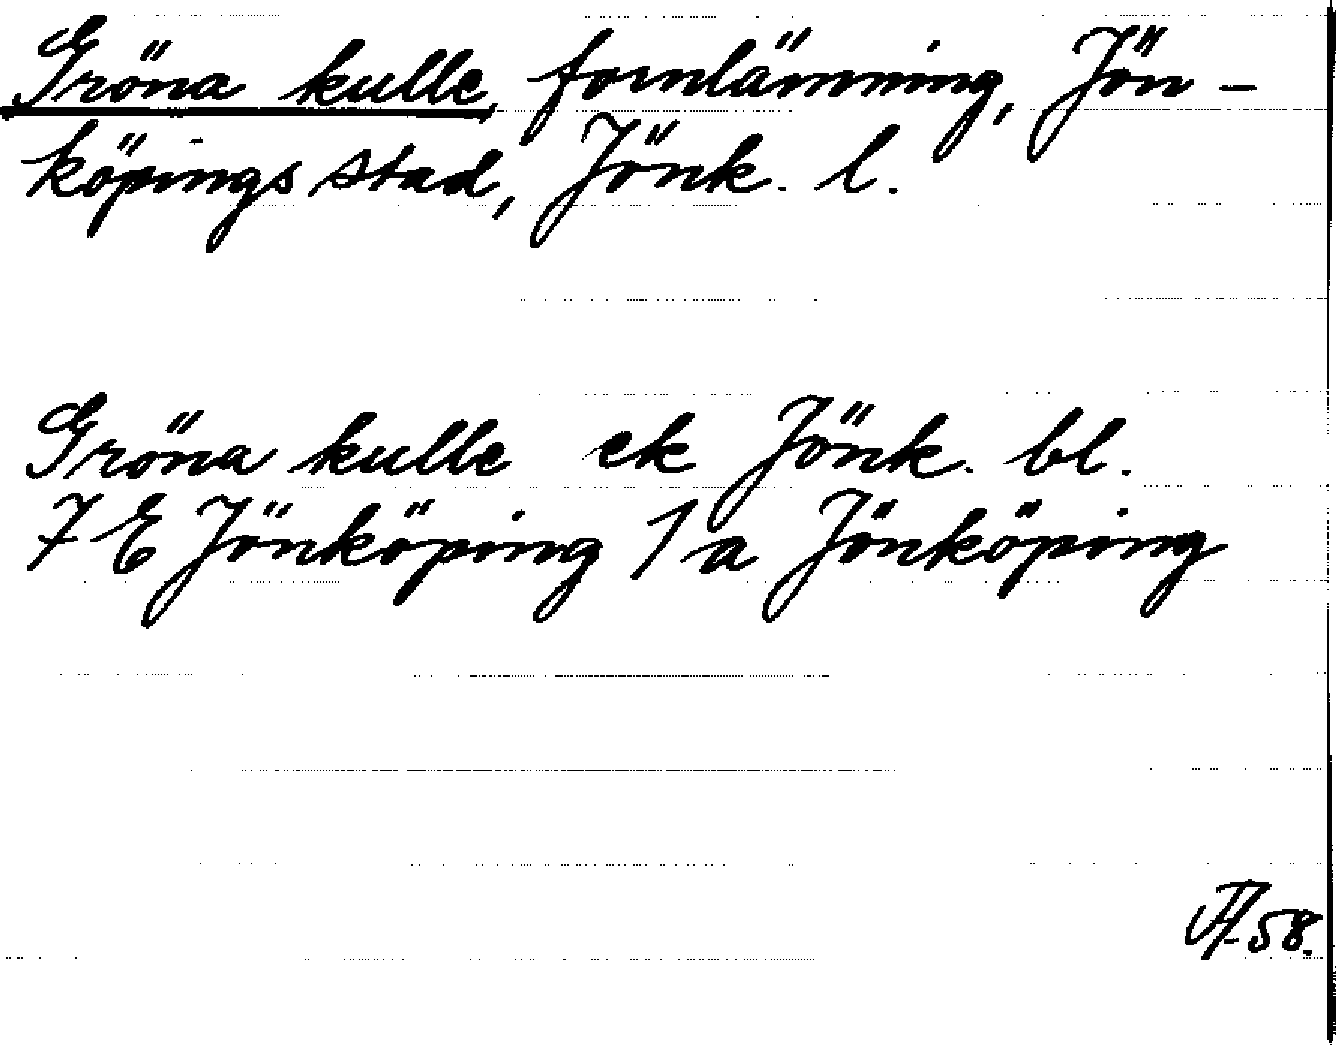 Gröna kulle, fornlämning, Jön-
köpings stad, Jönk. l.
Gröna kulle ek Jönk. bl.
7 E Jönköping 1 a Jönköping
-58.